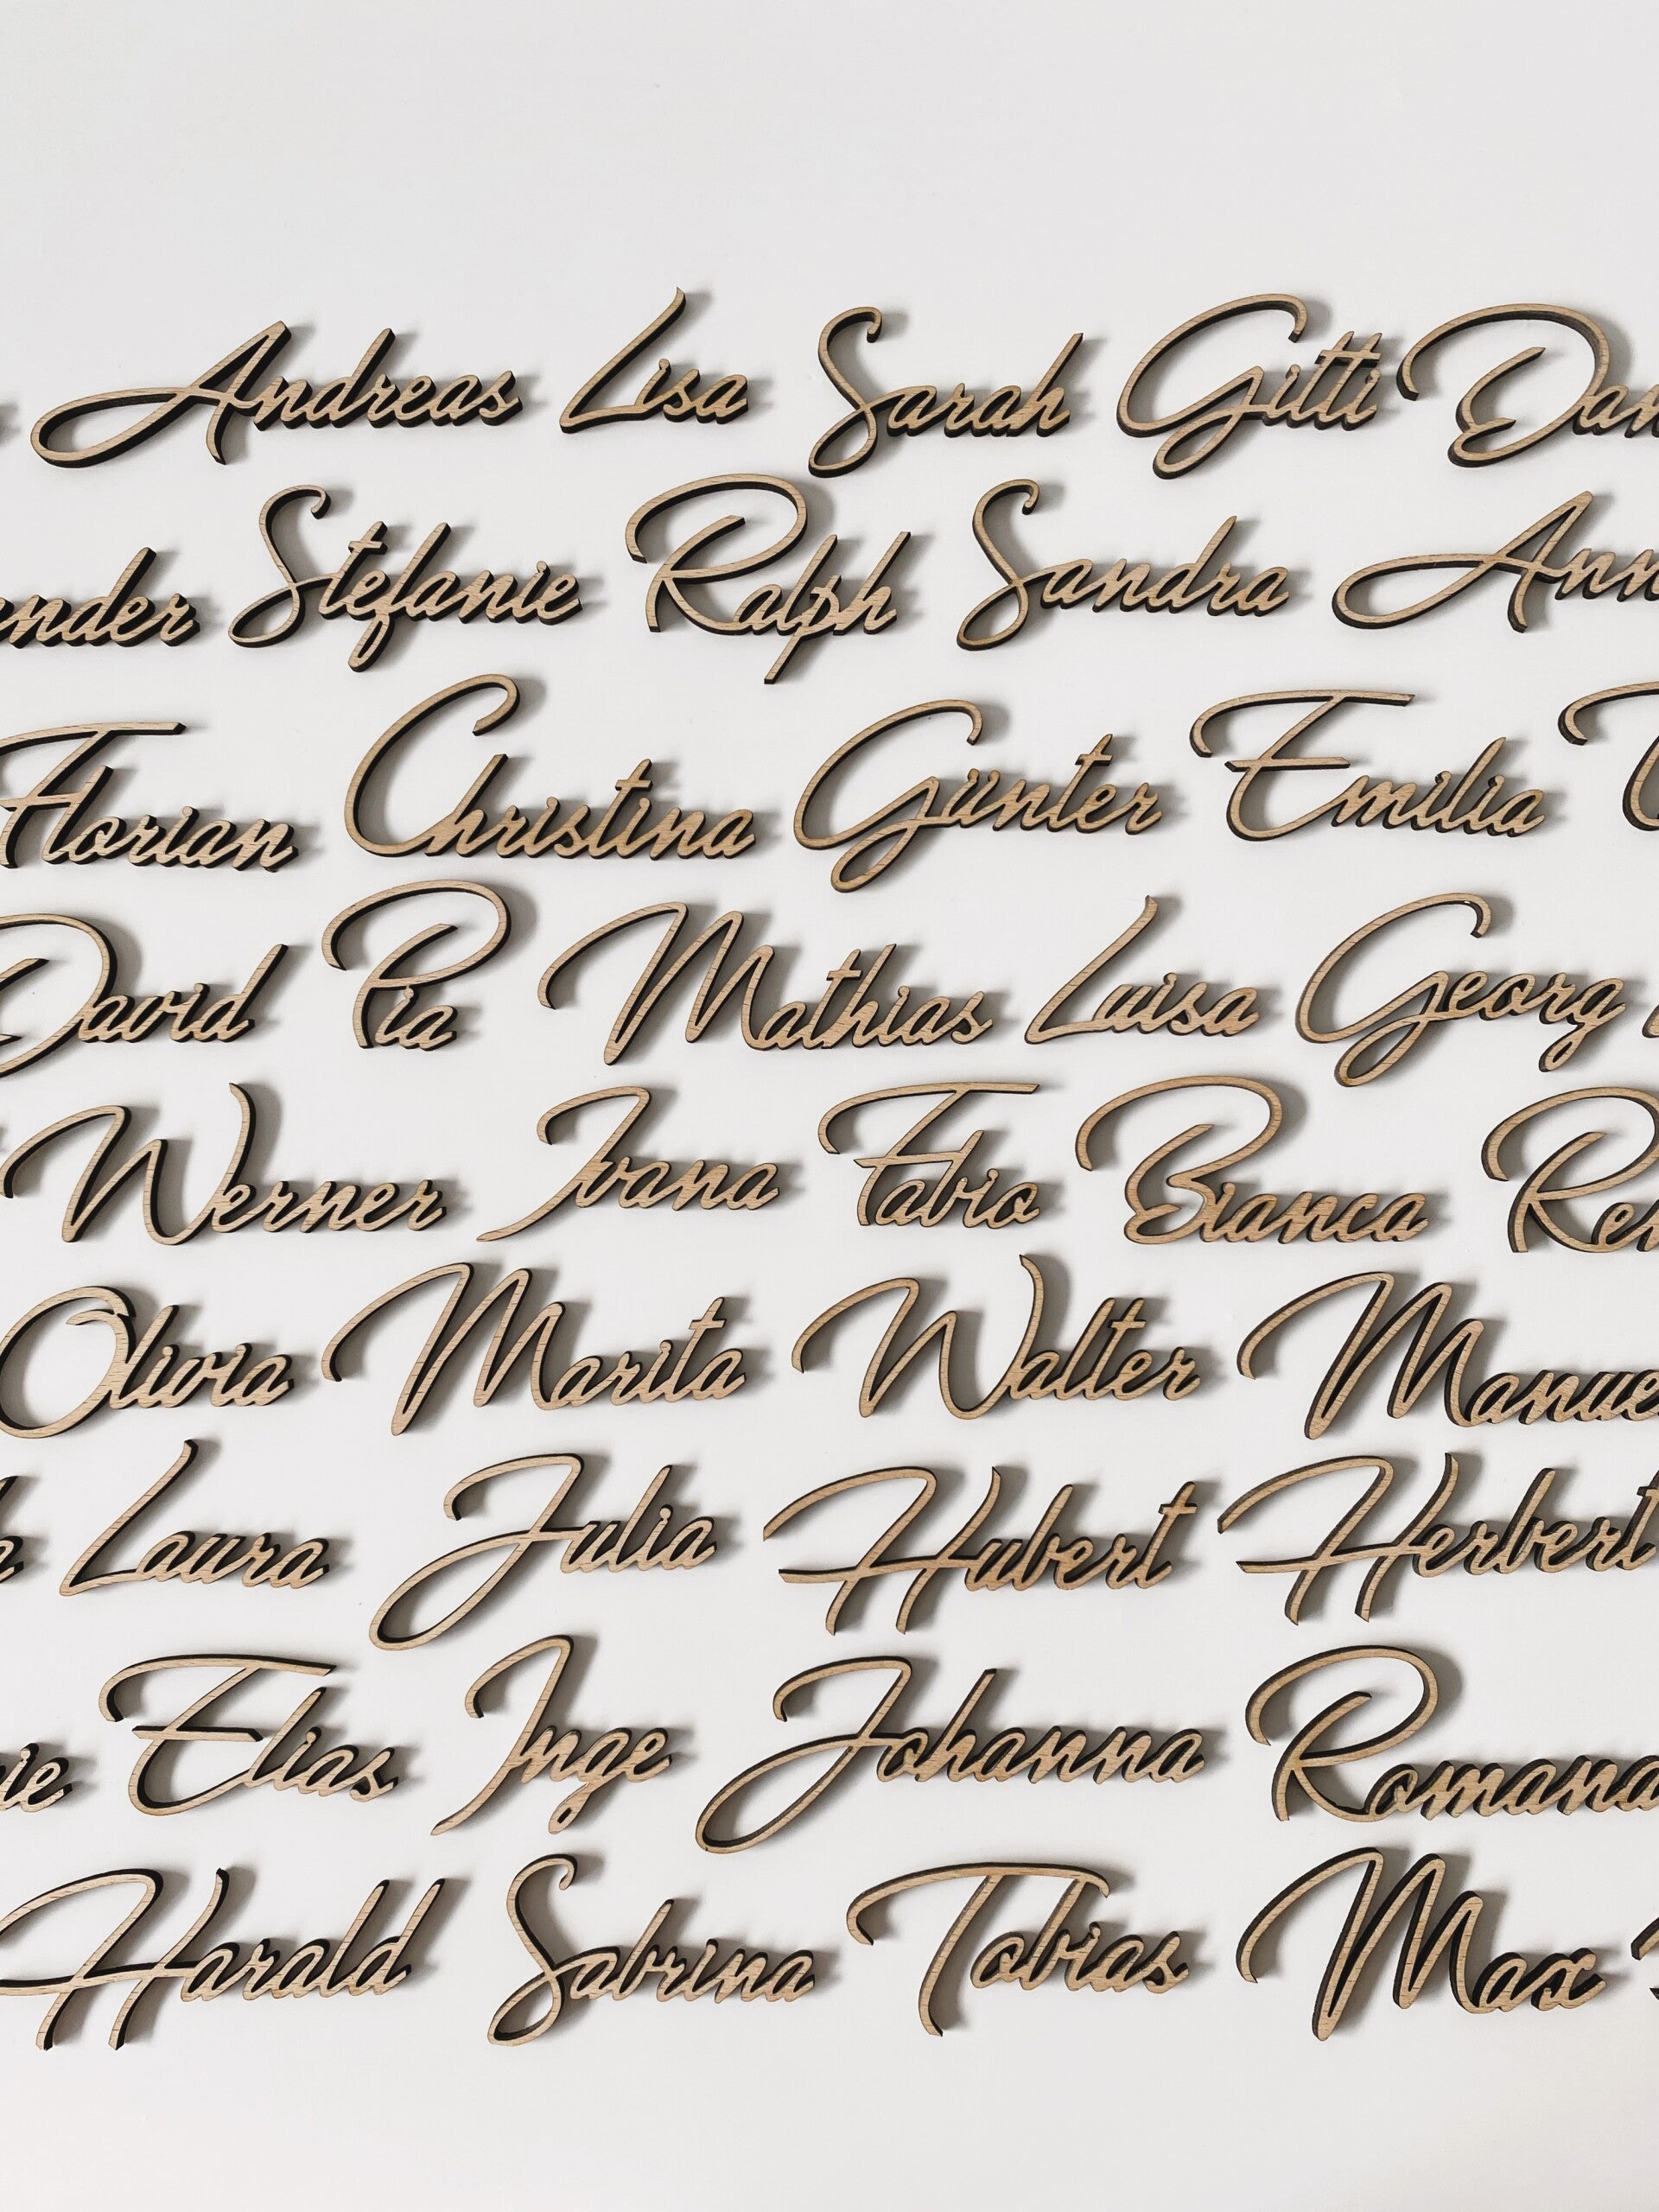 Andreas Lisa Sarah Gitti Dan
ender Stefanie Ralph Sandra Ann
Florian Christina Günter Emilia
David Pia Mathias Luisa Georg
Werner Ivana Fabio Bianca Ren
Olivia Marita Walter Manue
Laura Julia Hubert Herbert
ie Elias Inge Johanna Romana
Harald Sabrina Tobias Max